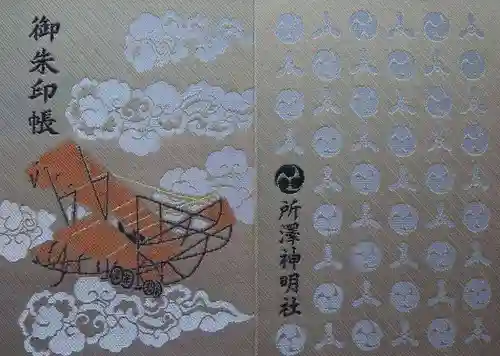 御朱印帳
所澤神明社